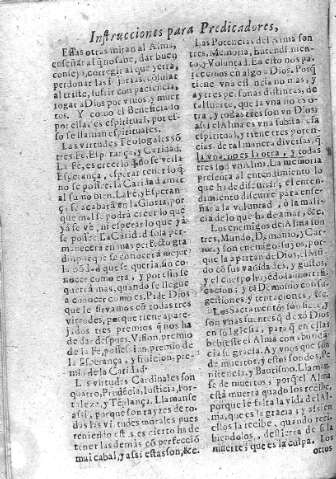 Instrucciones para Predicadores,
Estas otras miran al Alma,
enseñar al q no sabe, dar buen
consejo, corregir al que yerra,
perdonar las injurias, consolar
al triste, sufrir con paciencia,
rogar a Dios por vivos, y muer-
tos. Y como el
por ellas es espiritual, por es-
so se llaman espirituales.
Las virtudes Teologales sõ
tres, Fe, Esperança, y Caridad.
La Fe, es creer lo q no se vè; la
Esperança, esperar tener lo q
no se posee; la Caridad amar
al sumo bien. La Fè, y Esperan-
ça se acabarà en la Gloria, por
que mal se podrà creer lo que
yà se vè, ni esperar lo que yà
se posee. La Caridad si, à per-
manecerà en mas perfecto gra
do, porque se conocerà mejor
la
conocer como era, y por esso se
querrà mas, quando se llegue
à conocer como es. Pide Dios
que le sirvamos cõ todas tres
virtudes, porque tiene apare-
jados tres premios q nos ha
de dar despues. Vision, premio
de la Fè, possession premio de
la Esperança, y fruicion, pre-
mio de la Caridad.
Las virtudes Cardinales son
quatro, Prudẽcia, Iusticia, For-
taleza, y Tẽplança. Llamanse
assi, porque son rayzes de to-
das las virtudes morales pues
teniendo estas es cierto ha de
tener las demàs cõ perfecciõ
muicabal, y assi estas son, &c.
Las Potencias del Alma son
tres, Memoria, Entendimien-
to, y Voluntad. En esto nos pa-
rece algo a Dios. Porq
tiene vna essencia no mas, y
ay tres Personas distintas, de
tal suerte, que la vna no es o-
tra, y todas tres son vn Dios
El Alma tiene vna substãcia es-
piritual, y tiene tres potencias
de tal manera diversas, q
la vna no es la otra, y todas
tres son vn Alma. La memoria
presenta al entendimiento lo
que ha de discurrir, el enten-
dimiento discurre para que
ame la voluntad, ò la mali-
cia de lo que ha de amar, &c.
Los enemigos de Alma son
tres, Mundo, Demonio, y Car-
ne, son enemigos suyos, por-
que la apartan de Dios, el Mũ-
do cõ sus vanidades, y gustos,
y el cuerpo
y el Demonio con su-
gestiones, y tentaciones, &c.
Los Sacramentos son siete,
son vnas fuentes q dexò Dios
en su Iglesia, para q en ellas
bebiesse el Alma con abun-
dãcia su gracia. Ay vnos que son
de muertos, y estos son dos, Pe-
nitencia, y Bautismo. Llaman-
se de muertos; porque el Alma
està muerta quando los recibe,
porque le falta la vida del Al-
ma, que es la gracia, y assi en
ellos la recibe, quando reci-
biendolos, destierra de sì la
muerte, que es la culpa. Los
otros